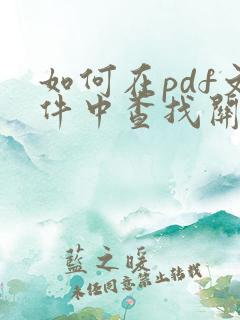 如何在pdf文
件中查找关
蓝之暖
未经同意禁止转载